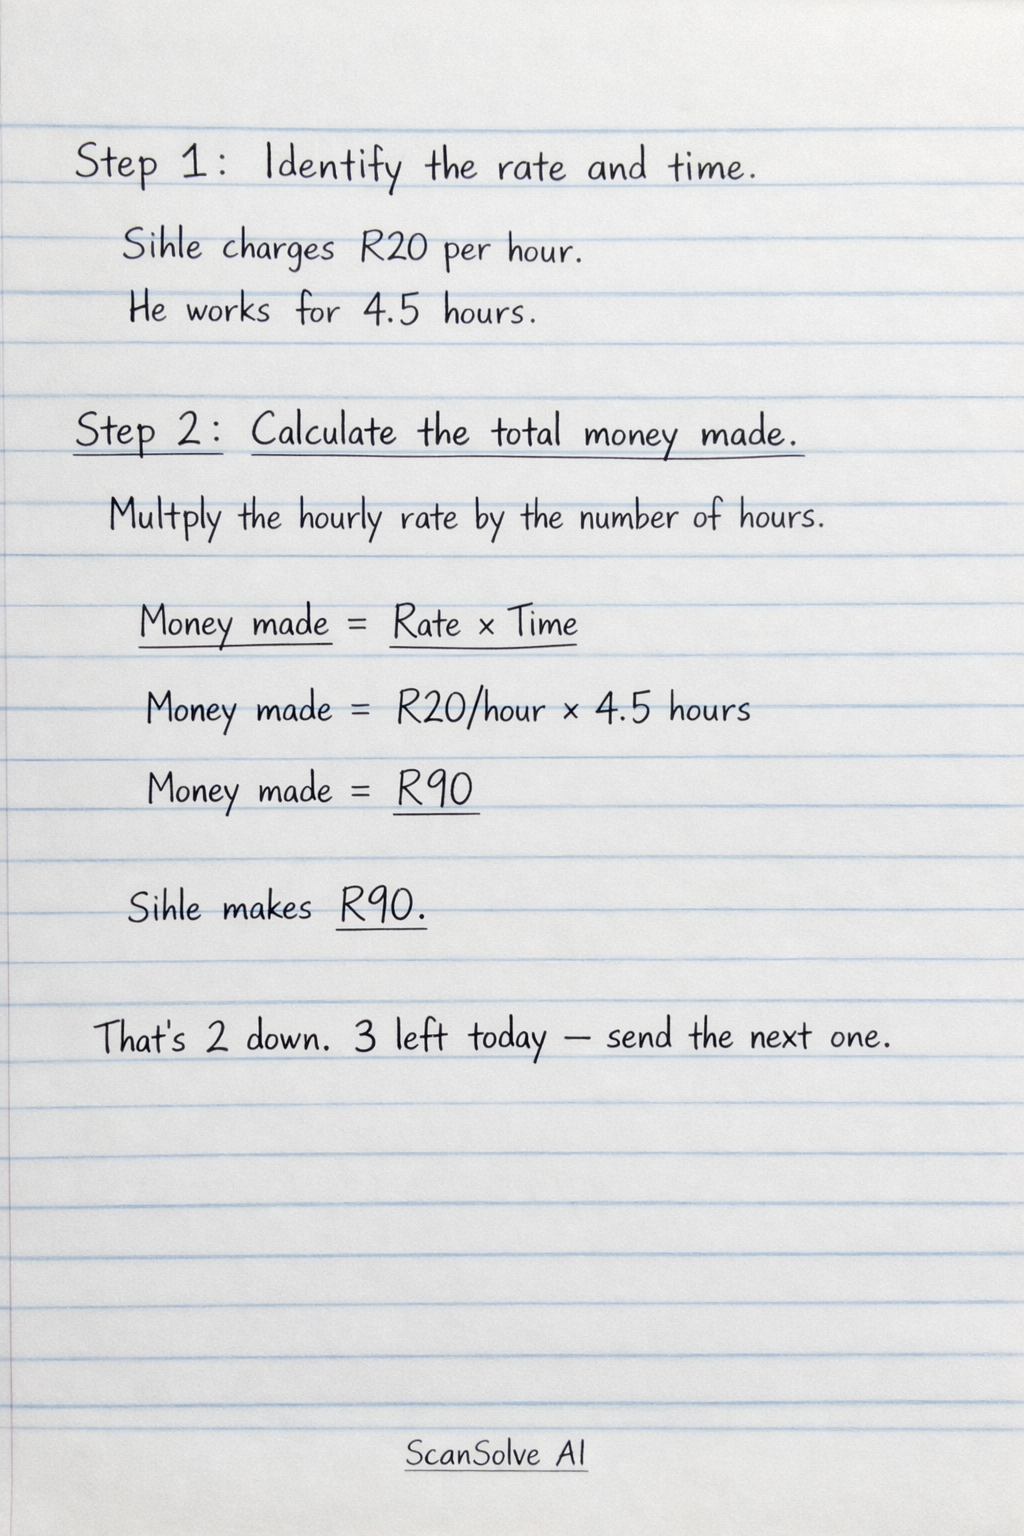 Step 1: Identify the rate and time.
Sihle charges R20 per hour.
He works for 4.5 hours.
Step 2: Calculate the total money made.
Multply the hourly rate by the number of hours.
Money made = Rate × Time
Money made = R20/hour × 4.5 hours
Money made = R90
Sihle makes R90.
That's 2 down. 3 left today — send the next one.
ScanSolve AI